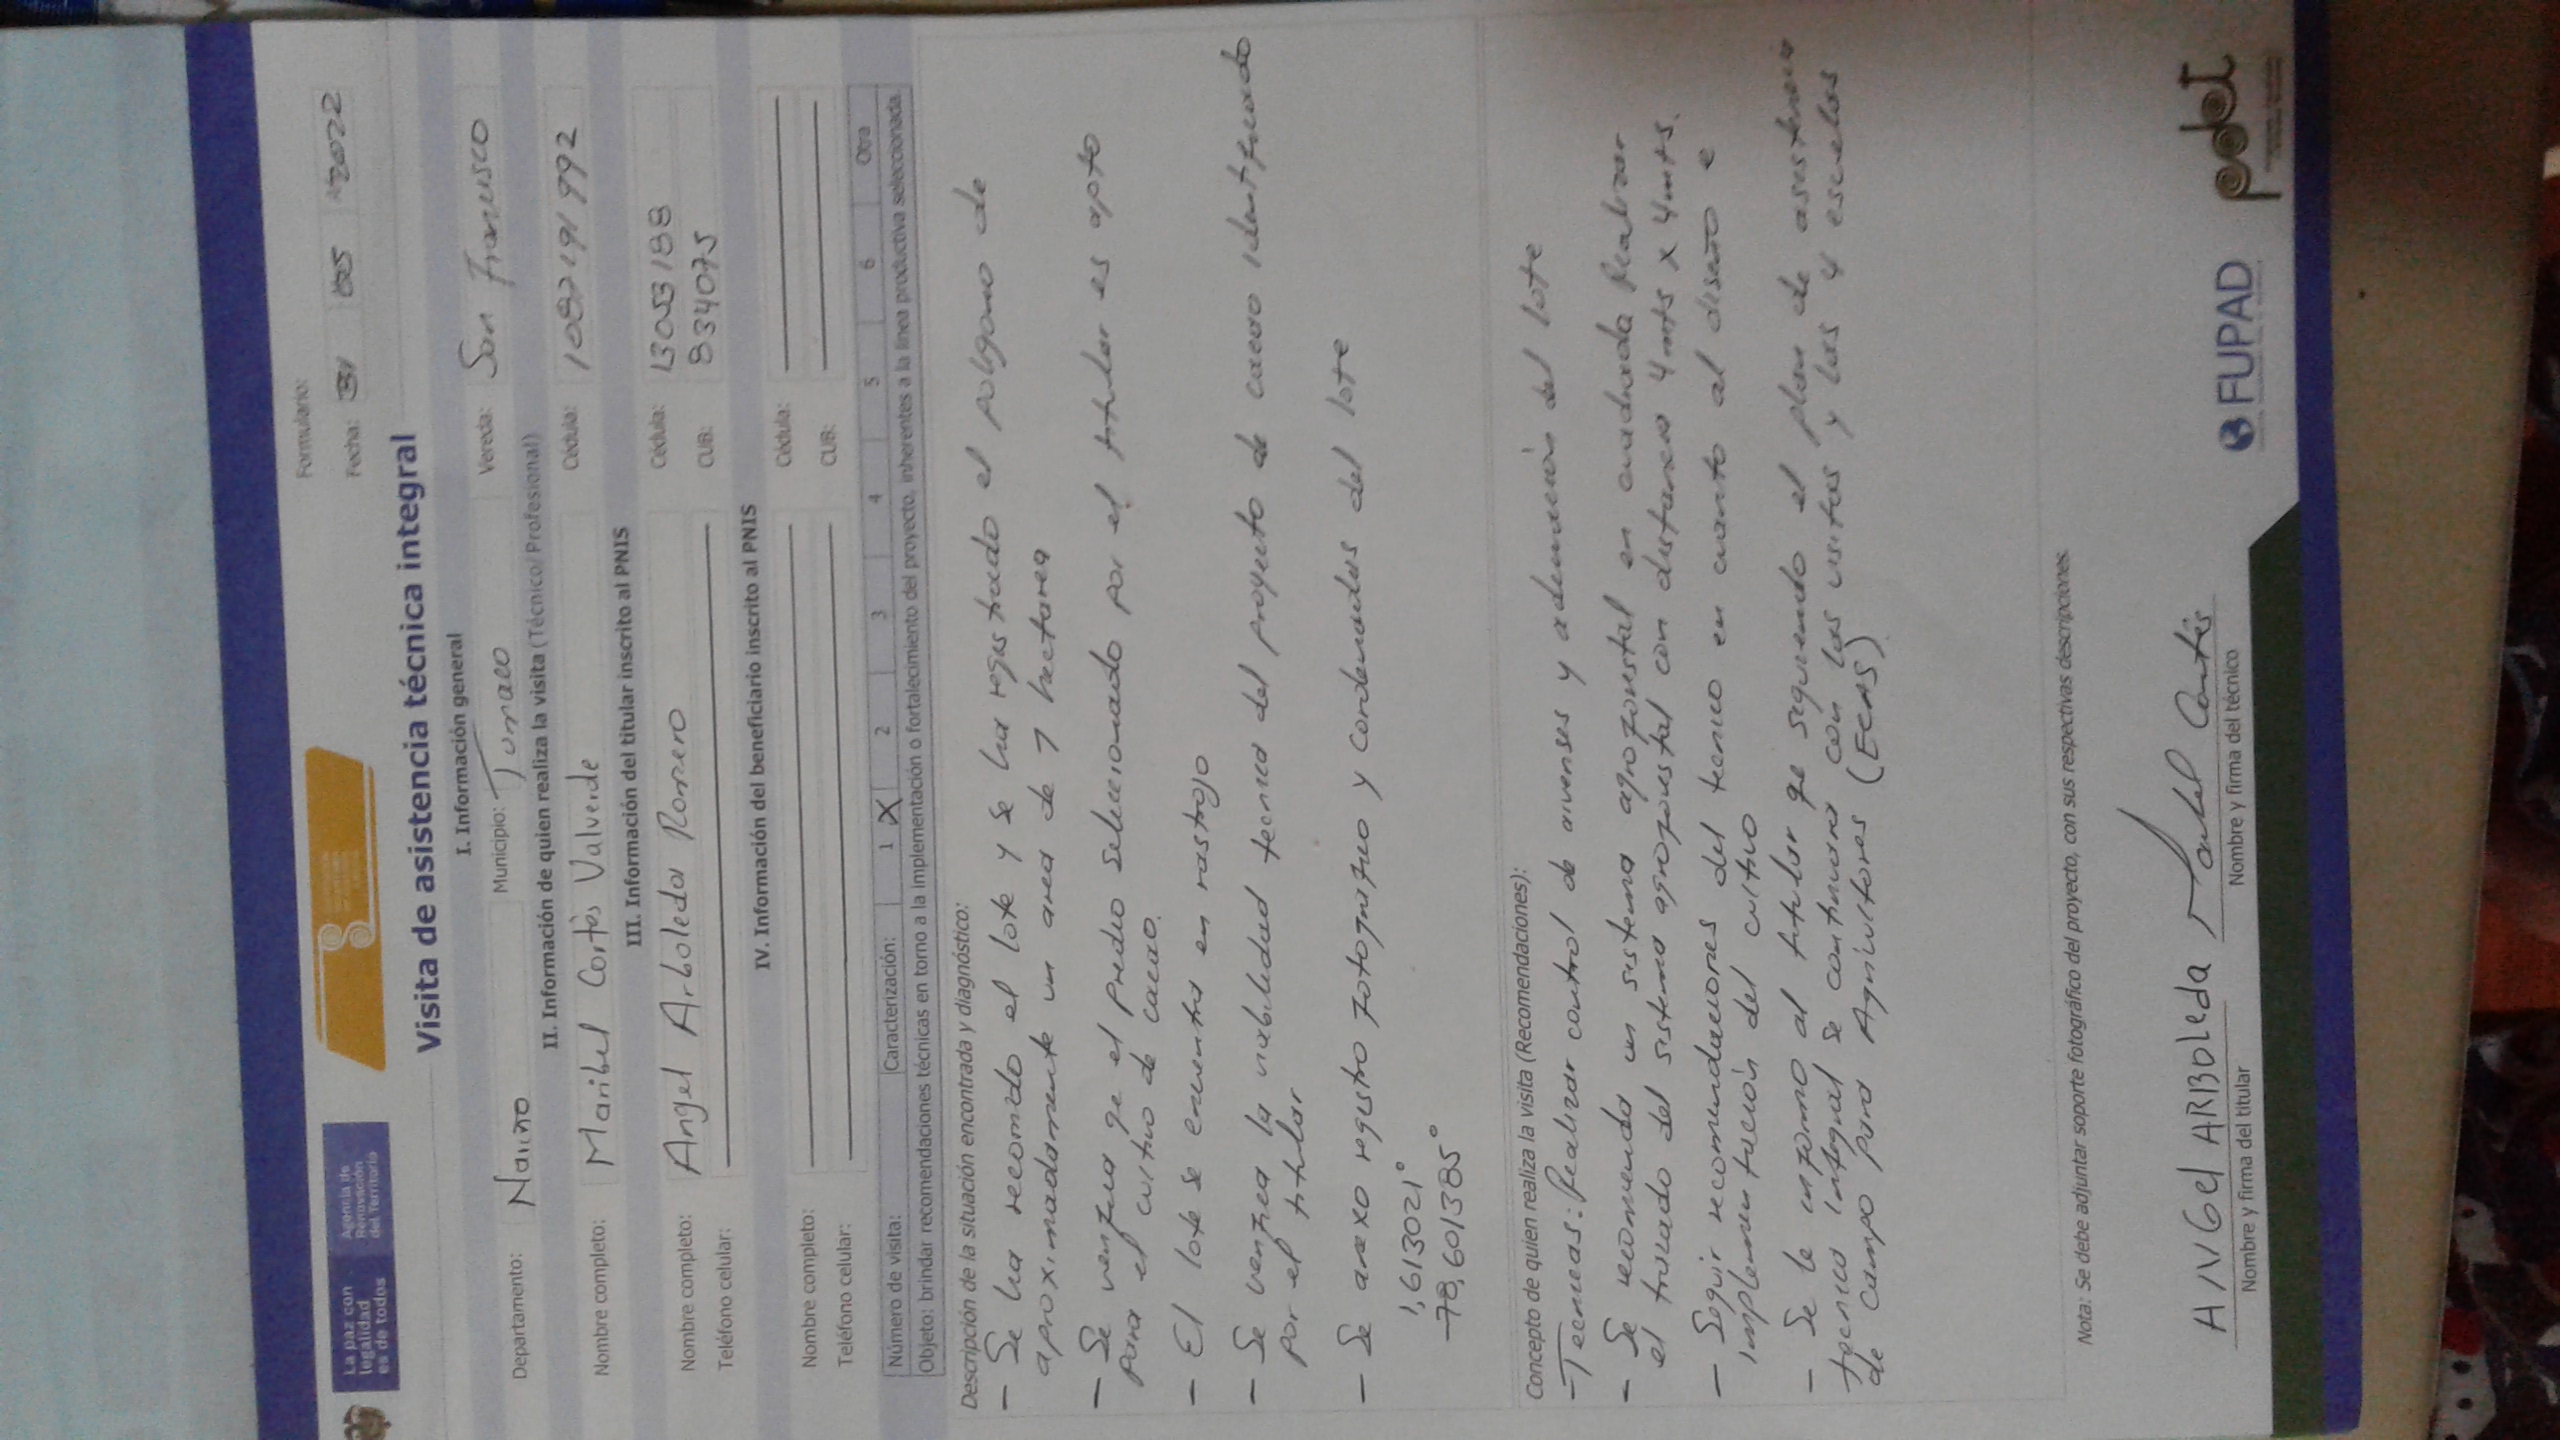 La paz con
legalidad
es de todos
Agencia de
Renovación
del Territorio
Formulario:
Fecha: 31 05 2022
Visita de asistencia técnica integral
I. Información general
Departamento: Nariño Municipio: Tumaco Vereda: San Francisco
II. Información de quien realiza la visita (Técnico/ Profesional)
Nombre completo: Maribel Cortès Valverde Cédula: 1087191992
III. Información del titular inscrito al PNIS
Nombre completo: Angel Arboleda Romero Cédula: 13053188
Teléfono celular: CUB: 834075
IV. Información del beneficiario inscrito al PNIS
Nombre completo: Cédula:
Teléfono celular: CUB:
Número de visita: Caracterización: 1 X 2 3 4 5 6 Otra
Objeto: brindar recomendaciones técnicas en torno a la implementación o fortalecimiento del proyecto, inherentes a la línea productiva seleccionada.
Descripción de la situación encontrada y diagnóstico:
- Se ha recorrido el lote y se ha registrado el poligono de
aproximadamente un area de 1 hectarea
- Se verifica qe el predio seleccionado por el titular es apto
para el cultivo de cacao.
- El lote se encuentra en rastrojo
- Se verifica la viabilidad tecnica del proyecto de cacao identificado
por el titular
- Se anexo registro fotografico y cordenadas del lote
1,613021°
-78,601385°
Concepto de quien realiza la visita (Recomendaciones):
- Tecnicas: Realizar control de arvenses y adecuación del lote
- Se recomienda un sistema agroforestal en cuadrado Realizar
el trazado del sistema agroforestal con distancia 4 mts x 4 mts.
- Seguir recomendaciones del tecnico en cuanto al diseño e
implementación del cultivo
- Se le informo al titular qe siguiendo el plan de asistencia
tecnica integral se continuara con las visitas y las 4 escuelas
de campo para Agricultores (ECAS)
Nota: Se debe adjuntar soporte fotográfico del proyecto, con sus respectivas descripciones.
ANGel ARBOLedA Maribel Cortès
Nombre y firma del titular Nombre y firma del técnico
FUPAD
pdet